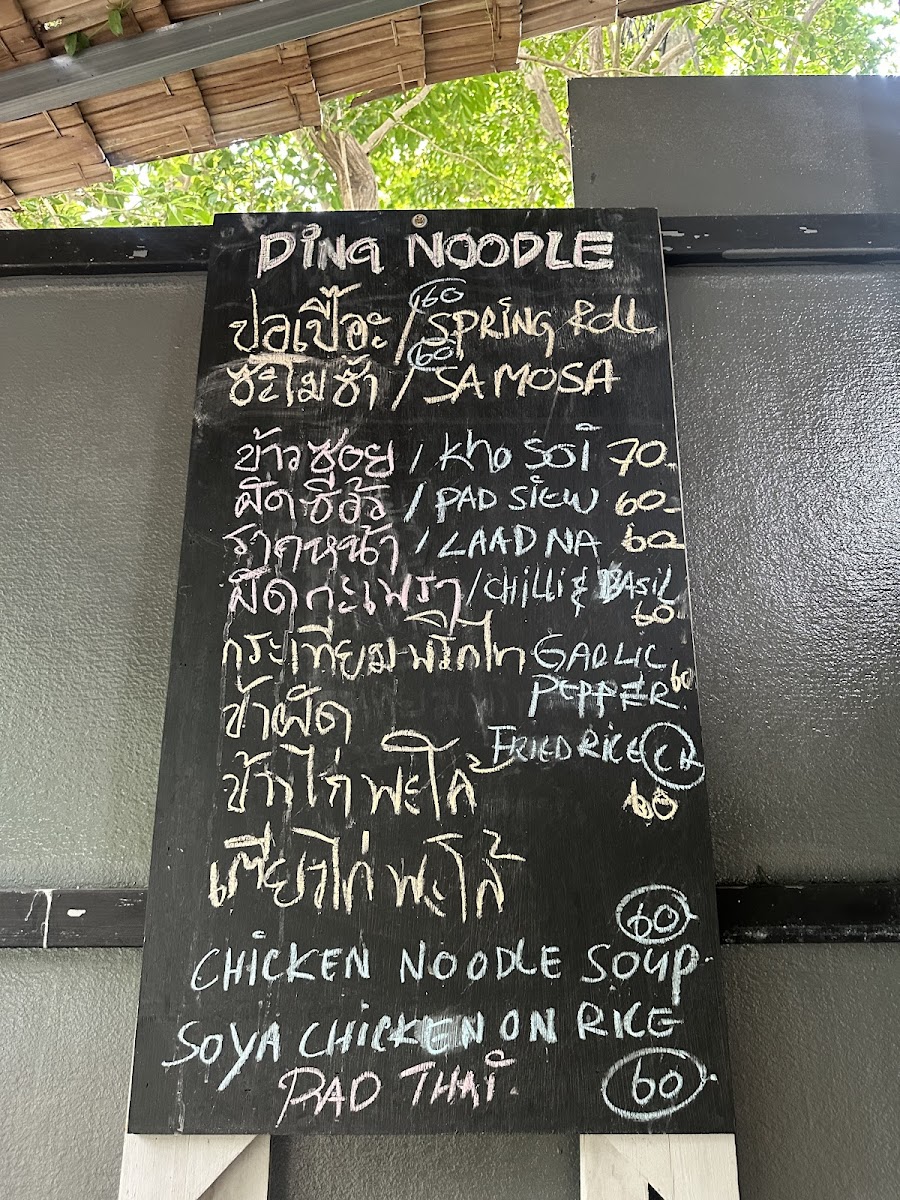 DING NOODLE
ปอเปี๊อะ / SPRING Roll 60
ซะโมซ้า / SAMOSA 60
ข้าวซอย / Kho Soi 70
ผัดซีอิ้ว / PAD SIEW 60
ราดหน้า / LAAD NA 60
ผัดกะเพรา / CHILLI & BASIL
60
กระเทียมพริกไท GARLIC
PEPPER 60
ข้าผัด
FRIED RICE
ข้าไก่พะโล้ 60
เตี๋ยวไก่พะโล้
60
CHICKEN NOODLE SOUP
SOYA CHICKEN ON RICE
PAD THAI 60